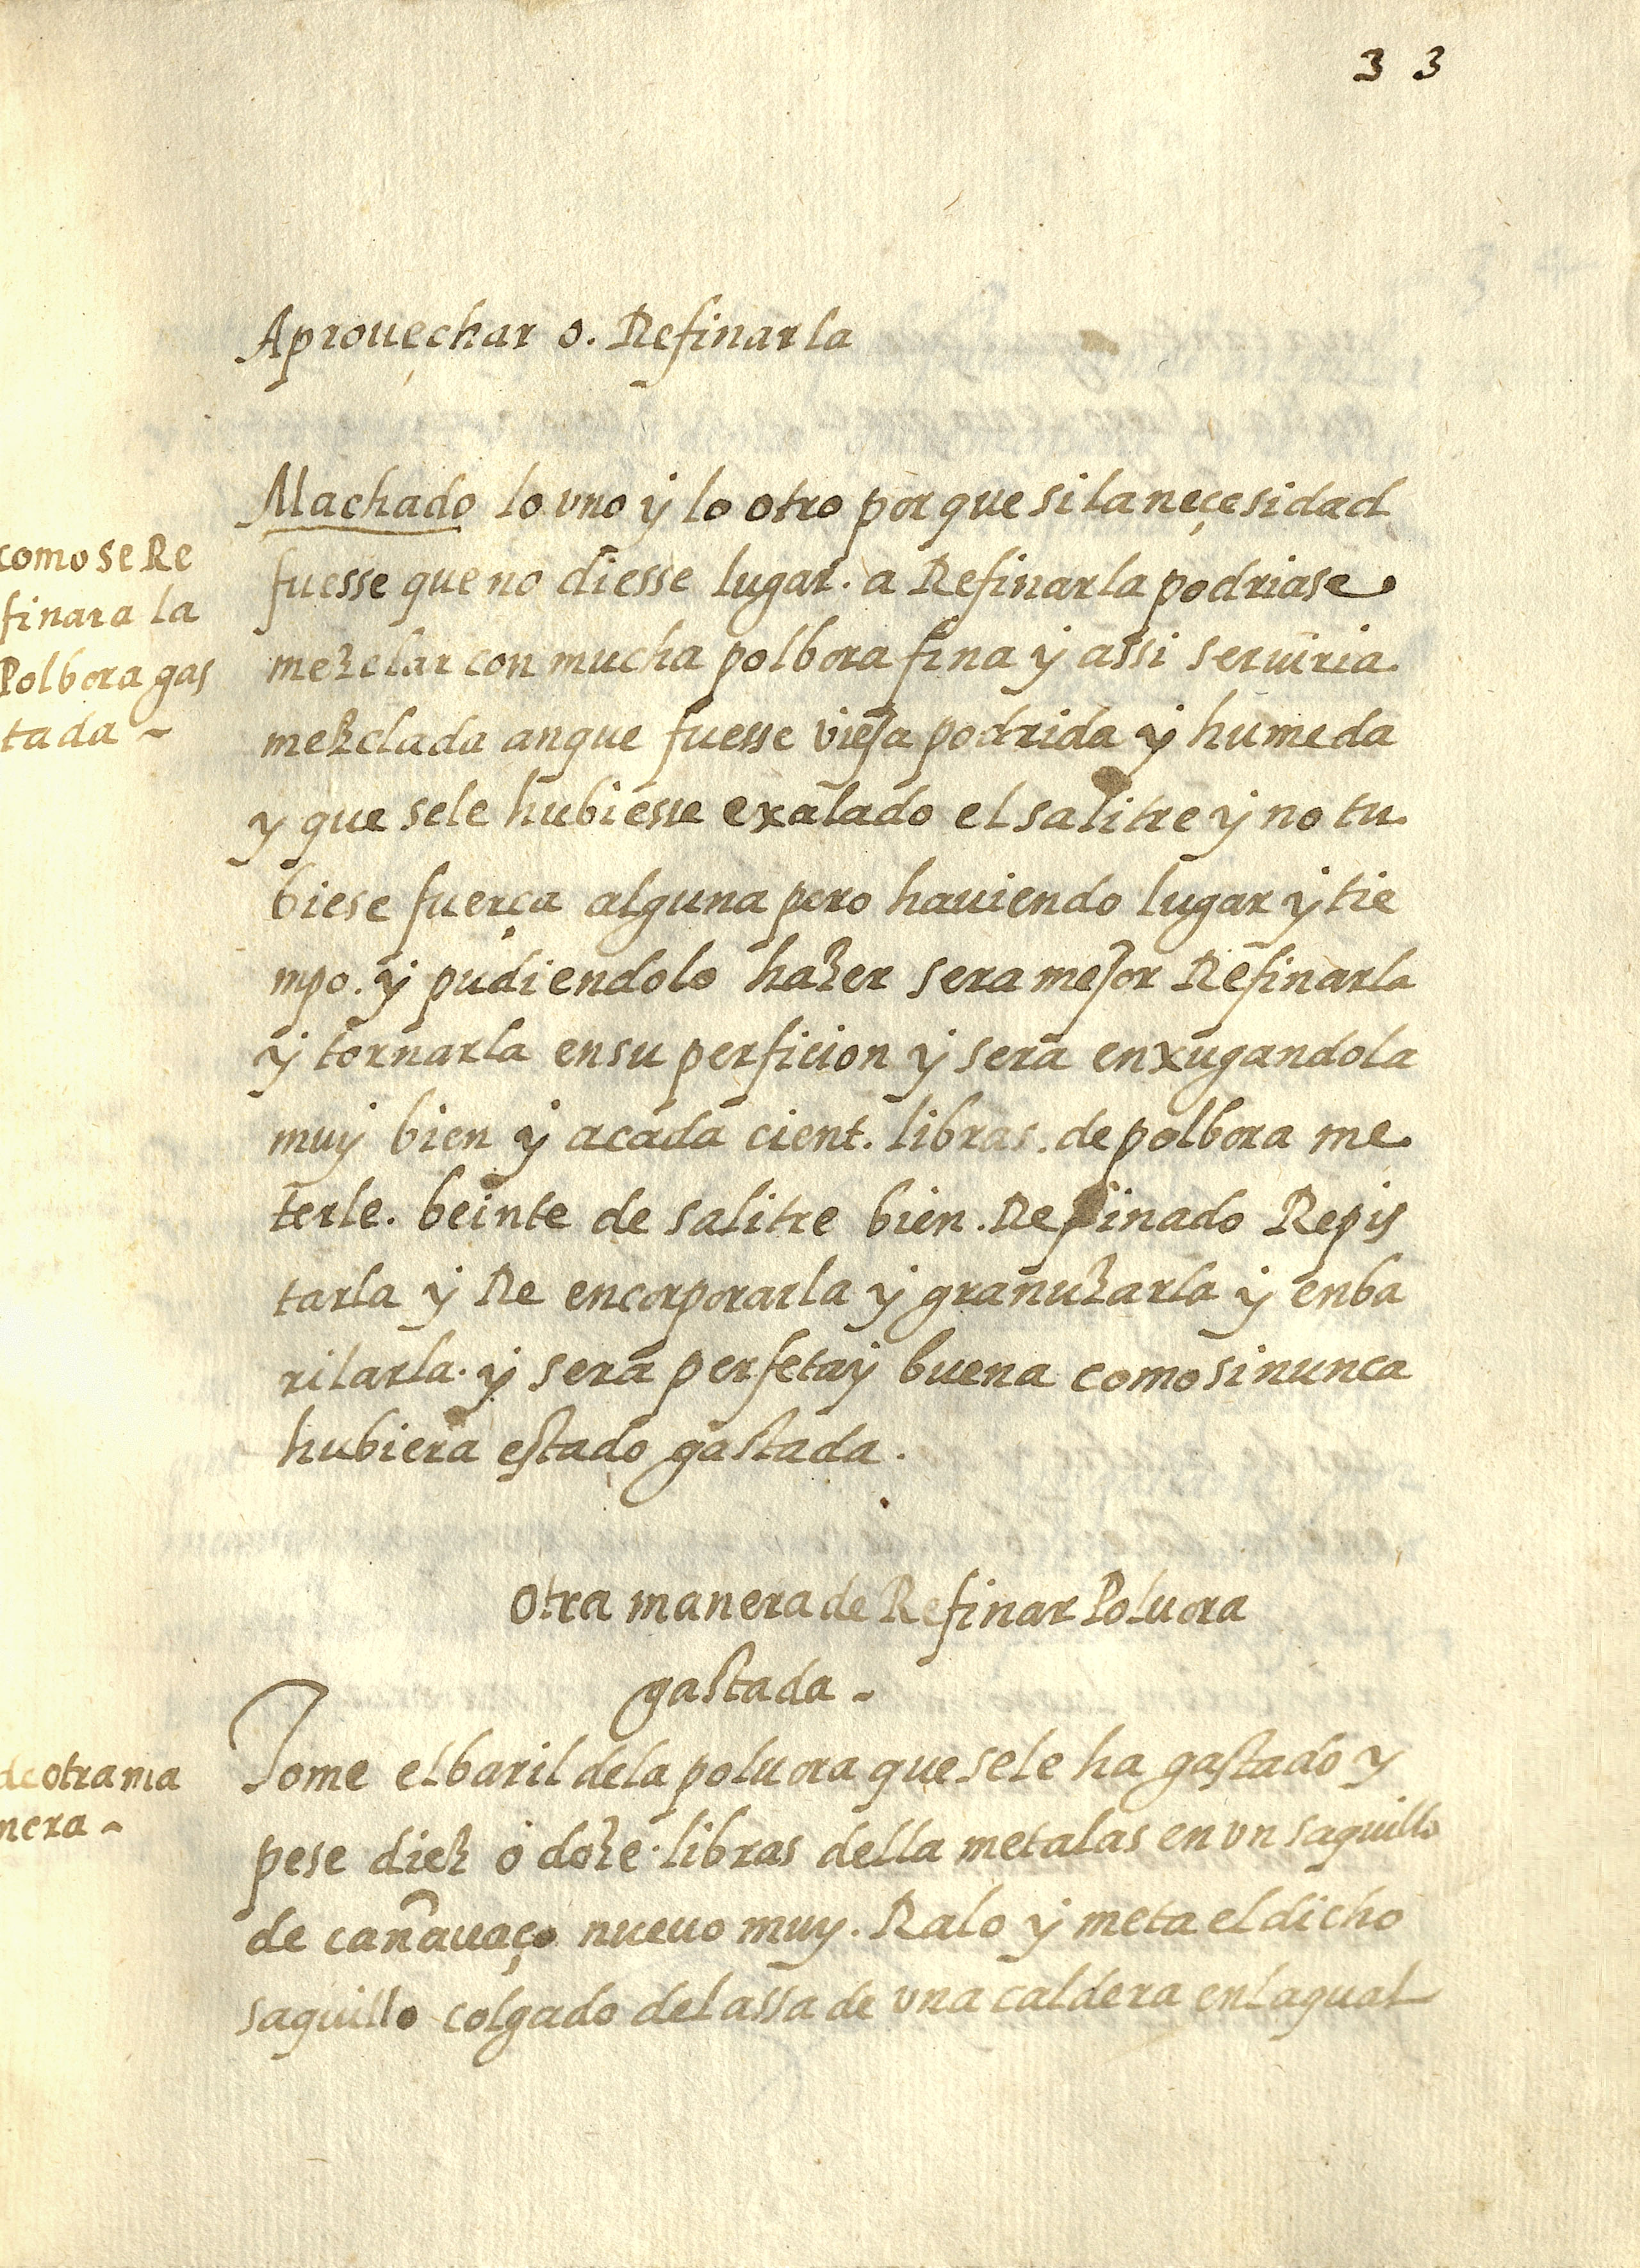 33
Aprouechar o. Refinarla
Machado lo vno y lo otro por que si la neçesidad
fuesse que no diesse lugar. a Refinarla podriase
mezclar con mucha polbora fina y assi seruiria.
mezclada anque fuesse vieja podrida y humeda
y que sele hubiesse exalado el salitre y no tu
biese fuerça alguna pero hauiendo lugar y tie
mpo. y pudiendolo hazer sera mejor Refinarla
y tornarla ensu perficion y sera enxugandola
muy bien y acada cient. libras. de polbora me
terle. beinte de salitre bien. Refinado Repis
tarla y Re encorporarla y granuzarla y enba
rilarla. y sera perfetay buena como si nunca
hubiera estado gastada.
como se Re
finara la
Polbora gas
tada ~
Otra manera de Refinar Poluora
gastada ~
Tome elbaril dela poluora que sele ha gastado y
pese diez o doze. libras della metalas en vn saquillo
de cañauaço nueuo muy. Ralo y meta el dicho
saquillo colgado del assa de vna caldera enlaqual
de otra ma
nera ~